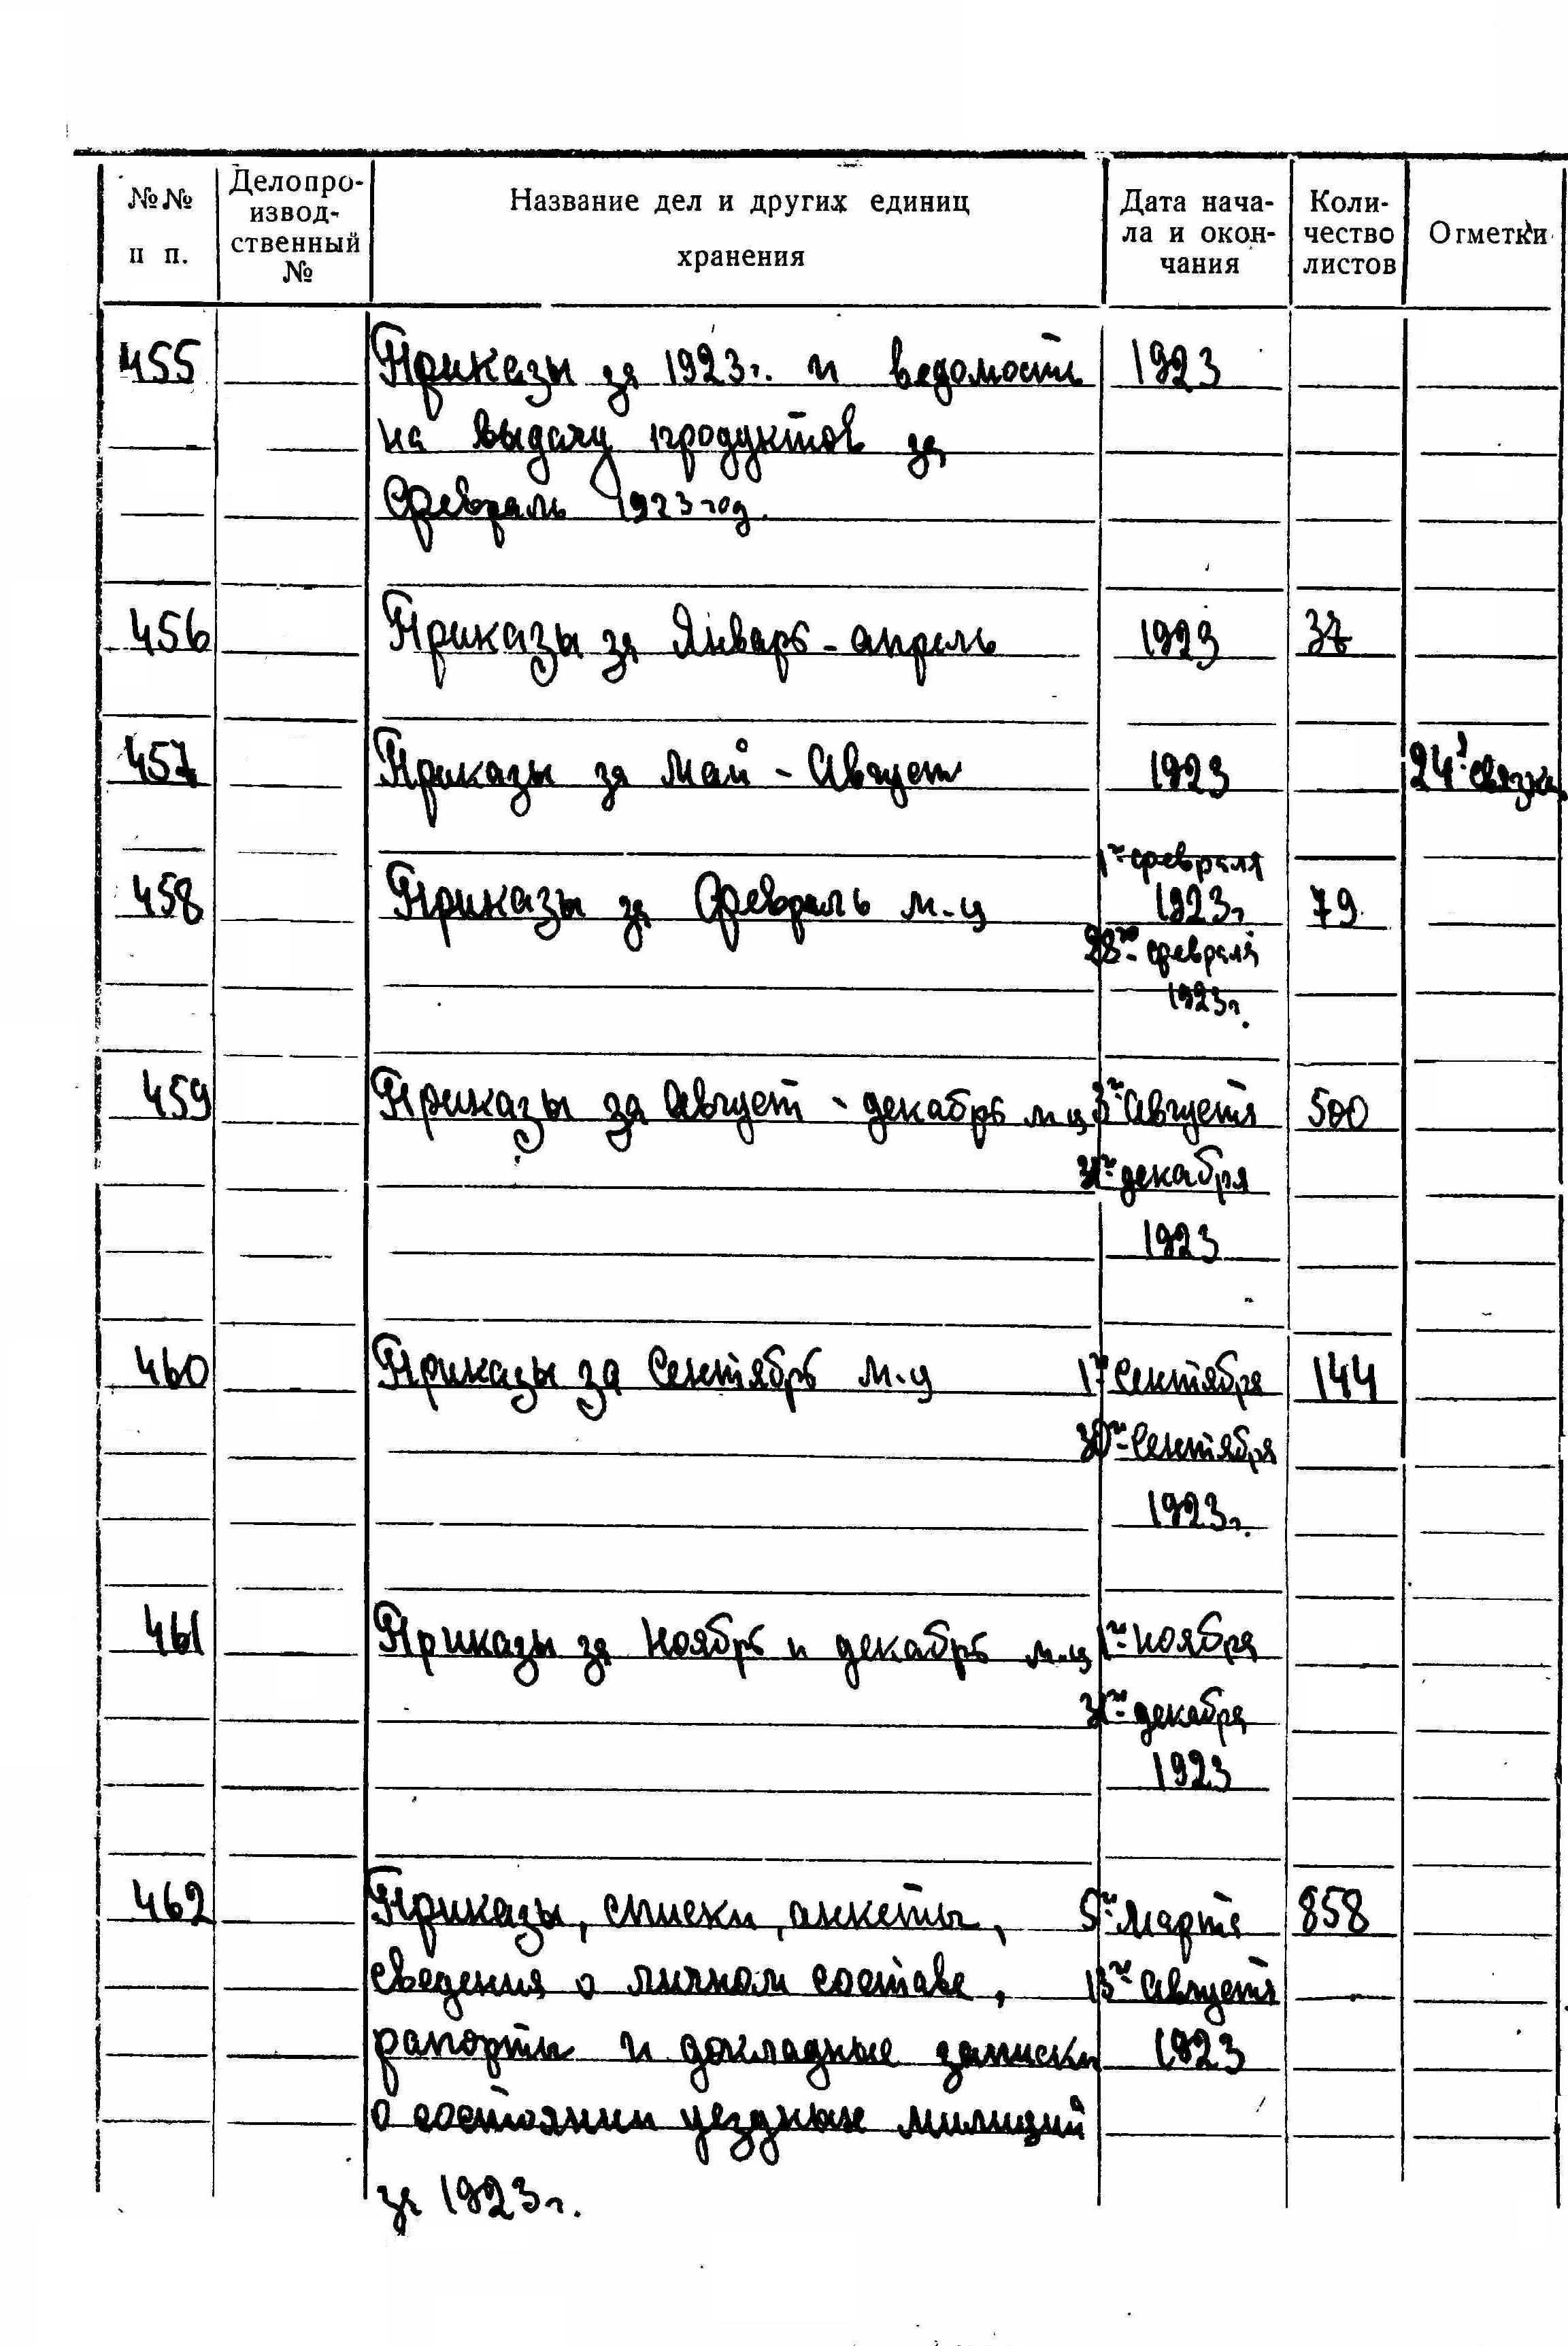 №№ п п.
Делопро-
извод-
ственный
№
Название дел и других единиц
хранения
Дата нача-
ла и окон-
чания
Коли-
чество
листов
Отметки
455 Приказы за 1923г. и ведомость 1923
на выдачу продуктов за
Февраль 1923 год.
456 Приказы за Январь - апрель 1923 37
457 Приказы за май - Август 1923 24 связка
1го февраля
458 Приказы за Февраль м-ц 1923г. 79
28го февраля
1923г.
459 Приказы за Август - декабрь м-ц 3го Августа 500
31го декабря
1923
460 Приказы за Сентябрь м-ц 1го Сентября 144
30го Сентября
1923г.
461 Приказы за Ноябрь и декабрь м-ц 1го ноября
31го декабря
1923
462 Приказы, списки, анкеты, 5го Марта 858
сведения о личном составе, 13го Августа
рапорты и докладные записки 1923
о состоянии уездных милиций
за 1923г.